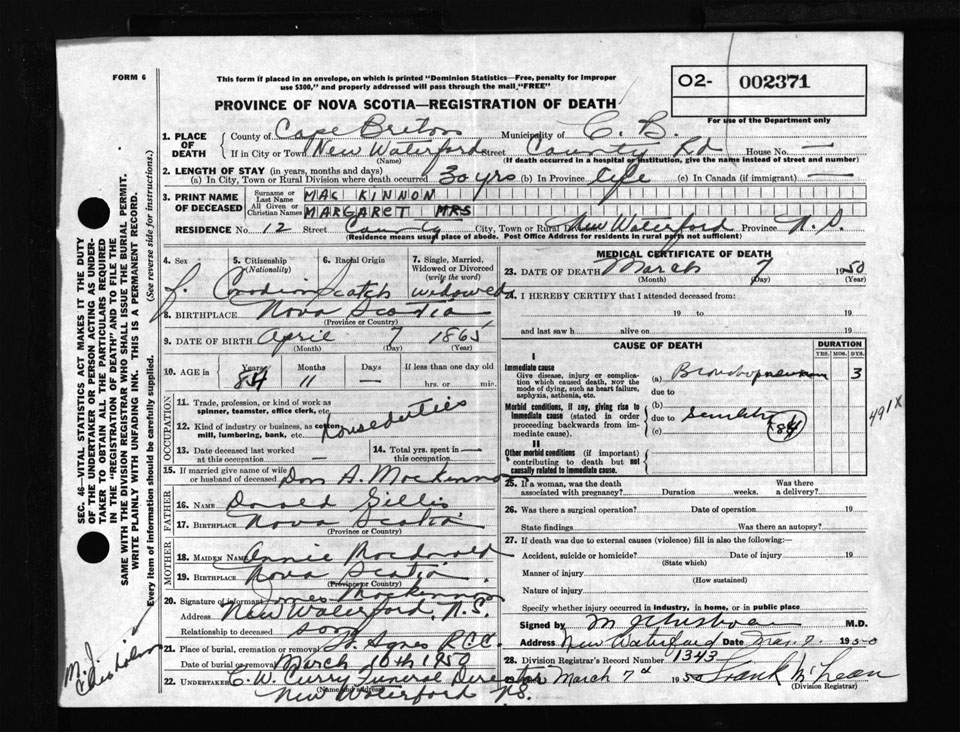 FORM 6
This form if placed in an envelope, on which is printed "Dominion Statistics—Free, penalty for improper
use $300," and properly addressed will pass through the mail "FREE"
O2- 002371
For use of the Department only
PROVINCE OF NOVA SCOTIA—REGISTRATION OF DEATH
1. PLACE OF DEATH County of Cape Breton Municipality of C. B.
If in City or Town New Waterford Street County Rd House No. —
(Name) (If death occurred in a hospital or institution, give the name instead of street and number)
2. LENGTH OF STAY (in years, months and days)
(a) In City, Town or Rural Division where death occurred 30 yrs (b) In Province life (c) In Canada (if immigrant) —
3. PRINT NAME OF DECEASED Surname or Last Name MAC KINNON
All Given or Christian Names MARGARET MRS
RESIDENCE No. 12 Street County City, Town or Rural New Waterford Province N.S.
(Residence means usual place of abode. Post Office Address for residents in rural parts not sufficient)
4. Sex 5. Citizenship (Nationality) 6. Racial Origin 7. Single, Married, Widowed or Divorced (write the word)
f. Canadian Scotch widowed
8. BIRTHPLACE Nova Scotia
(Province or Country)
9. DATE OF BIRTH April 7 1865
(Month) (Day) (Year)
10. AGE in Years Months Days If less than one day old
84 11 — hrs. or min.
OCCUPATION
11. Trade, profession, or kind of work as spinner, teamster, office clerk, etc.
house duties
12. Kind of industry or business, as cotton mill, lumbering, bank, etc.
13. Date deceased last worked at this occupation — 14. Total yrs. spent in this occupation
15. If married give name of wife or husband of deceased Dan A. Mackinnon
FATHER
16. NAME Donald Gillis
17. BIRTHPLACE Nova Scotia
(Province or Country)
MOTHER
18. MAIDEN NAME Annie Macdonald
19. BIRTHPLACE Nova Scotia
(Province or Country)
20. Signature of informant James Mackinnon
Address New Waterford, N.S.
Relationship to deceased son
21. Place of burial, cremation or removal St. Agnes R.C.C.
Date of burial or removal March 10th 1950
22. UNDERTAKER C. W. Curry Funeral Director
(Name and address)
New Waterford N.S.
MEDICAL CERTIFICATE OF DEATH
23. DATE OF DEATH March 7 1950
(Month) (Day) (Year)
24. I HEREBY CERTIFY that I attended deceased from:
19 to 19
and last saw h alive on 19
CAUSE OF DEATH DURATION
YRS. MOS. DYS.
I
Immediate cause
Give disease, injury or complication which caused death, NOT the mode of dying, such as heart failure, asphyxia, asthenia, etc.
(a) Bronchopneumonia 3
due to
Morbid conditions, if any, giving rise to immediate cause (stated in order proceeding backwards from immediate cause).
(b)
due to Senility
(c) 84
491X
II
Other morbid conditions (if important) contributing to death but not causally related to immediate cause.
25. If a woman, was the death associated with pregnancy? Duration weeks. Was there a delivery?
26. Was there a surgical operation? Date of operation 19
State findings Was there an autopsy?
27. If death was due to external causes (violence) fill in also the following:—
Accident, suicide or homicide? Date of injury 19
(State which)
Manner of injury
(How sustained)
Nature of injury
Specify whether injury occurred in industry, in home, or in public place
Signed by M. J. M.D.
Address New Waterford Date Mar. 7. 1950
28. Division Registrar's Record Number 1343
March 7th 1950 Frank McLean
(Division Registrar)
SEC. 46—VITAL STATISTICS ACT MAKES IT THE DUTY
OF THE UNDERTAKER OR PERSON ACTING AS UNDER-
TAKER TO OBTAIN ALL THE PARTICULARS REQUIRED
IN THE "REGISTRATION OF DEATH" AND TO FILE THE
SAME WITH THE DIVISION REGISTRAR WHO SHALL ISSUE THE BURIAL PERMIT.
WRITE PLAINLY WITH UNFADING INK. THIS IS A PERMANENT RECORD.
Every item of information should be carefully supplied. (See reverse side for instructions.)
M. J.